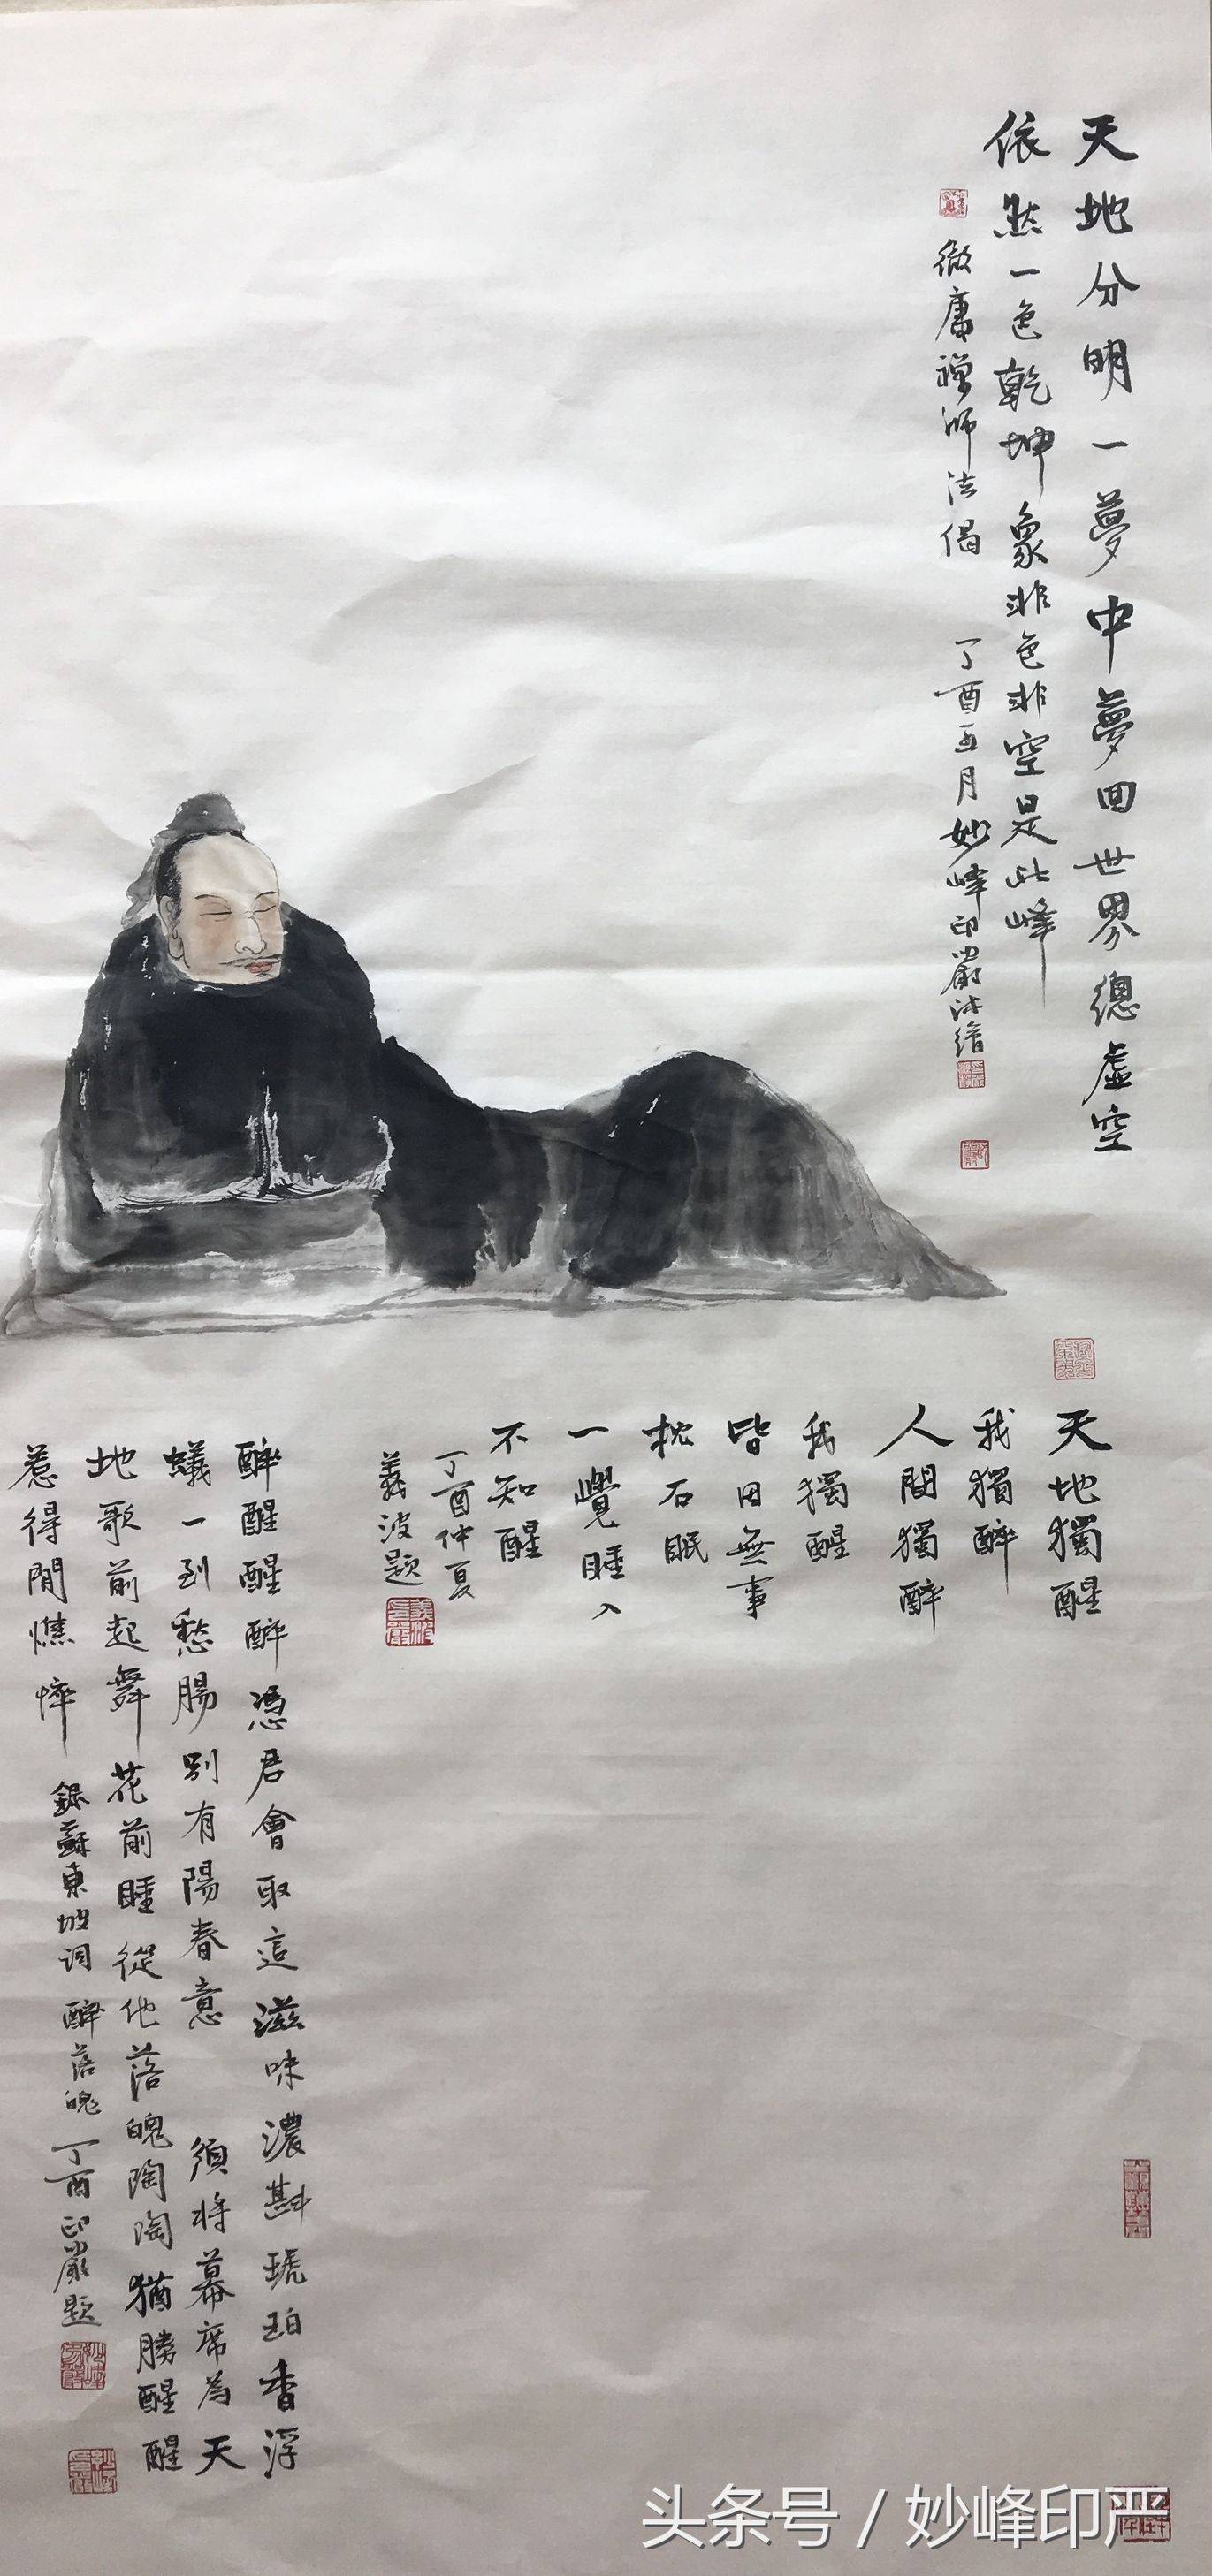 天地分明一夢中夢回世界總虛空
依然一色乾坤象非色非空是此峰
微庸禅师法偈 丁酉五月妙峰印嚴沐繪
天地獨醒
我獨醉
人間獨醉
我獨醒
皆因無事
枕石眠
一覺睡入
不知醒
丁酉仲夏
義波题
醉醒醒醉憑君會取這滋味濃斟琥珀香浮
蟻一到愁腸別有陽春意 須将幕席為天
地歌前起舞花前睡從他落魄陶陶猶勝醒醒
惹得閒憔悴 録蘇東坡词 醉落魄 丁酉印嚴题
头条号 / 妙峰印严